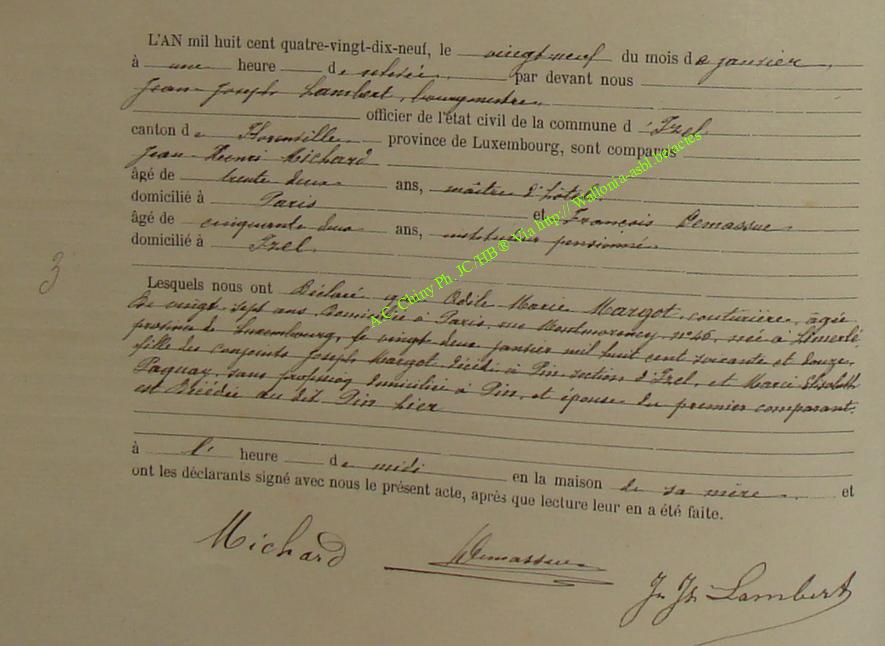 L'AN mil huit cent quatre-vingt-dix-neuf, le vingt neuf du mois de janvier
à une heure de relevée par devant nous
Jean Joseph Lambert, bourgmestre
officier de l'état civil de la commune d'Izel
canton de Florenville province de Luxembourg, sont comparus
Jean Henri Michard
âgé de trente deux ans, maître d'hôtel
domicilié à Paris et François DemasSue
âgé de cinquante deux ans, instituteur pensionné
domicilié à Izel
3
Lesquels nous ont déclaré que Odile Marie Margot couturière, âgée
de vingt sept ans, domiciliée à Paris, rue Montmorency n° 46, née à Limerlé
province de Luxembourg, le vingt deux janvier mil huit cent soixante et douze,
fille des conjoints Joseph Margot décédé à Pin section d'Izel, et Marie Elisabeth
Paquay, sans profession domiciliée à Pin, et épouse du premier comparant.
est décédée au dit Pin hier
à l' heure de midi en la maison de sa mère et
ont les déclarants signé avec nous le présent acte, après que lecture leur en a été faite.
Michard
J. Js. Lambert
A.C. Chiny Ph. JC/HB ® Via http:// Wallonia-asbl.be/actes